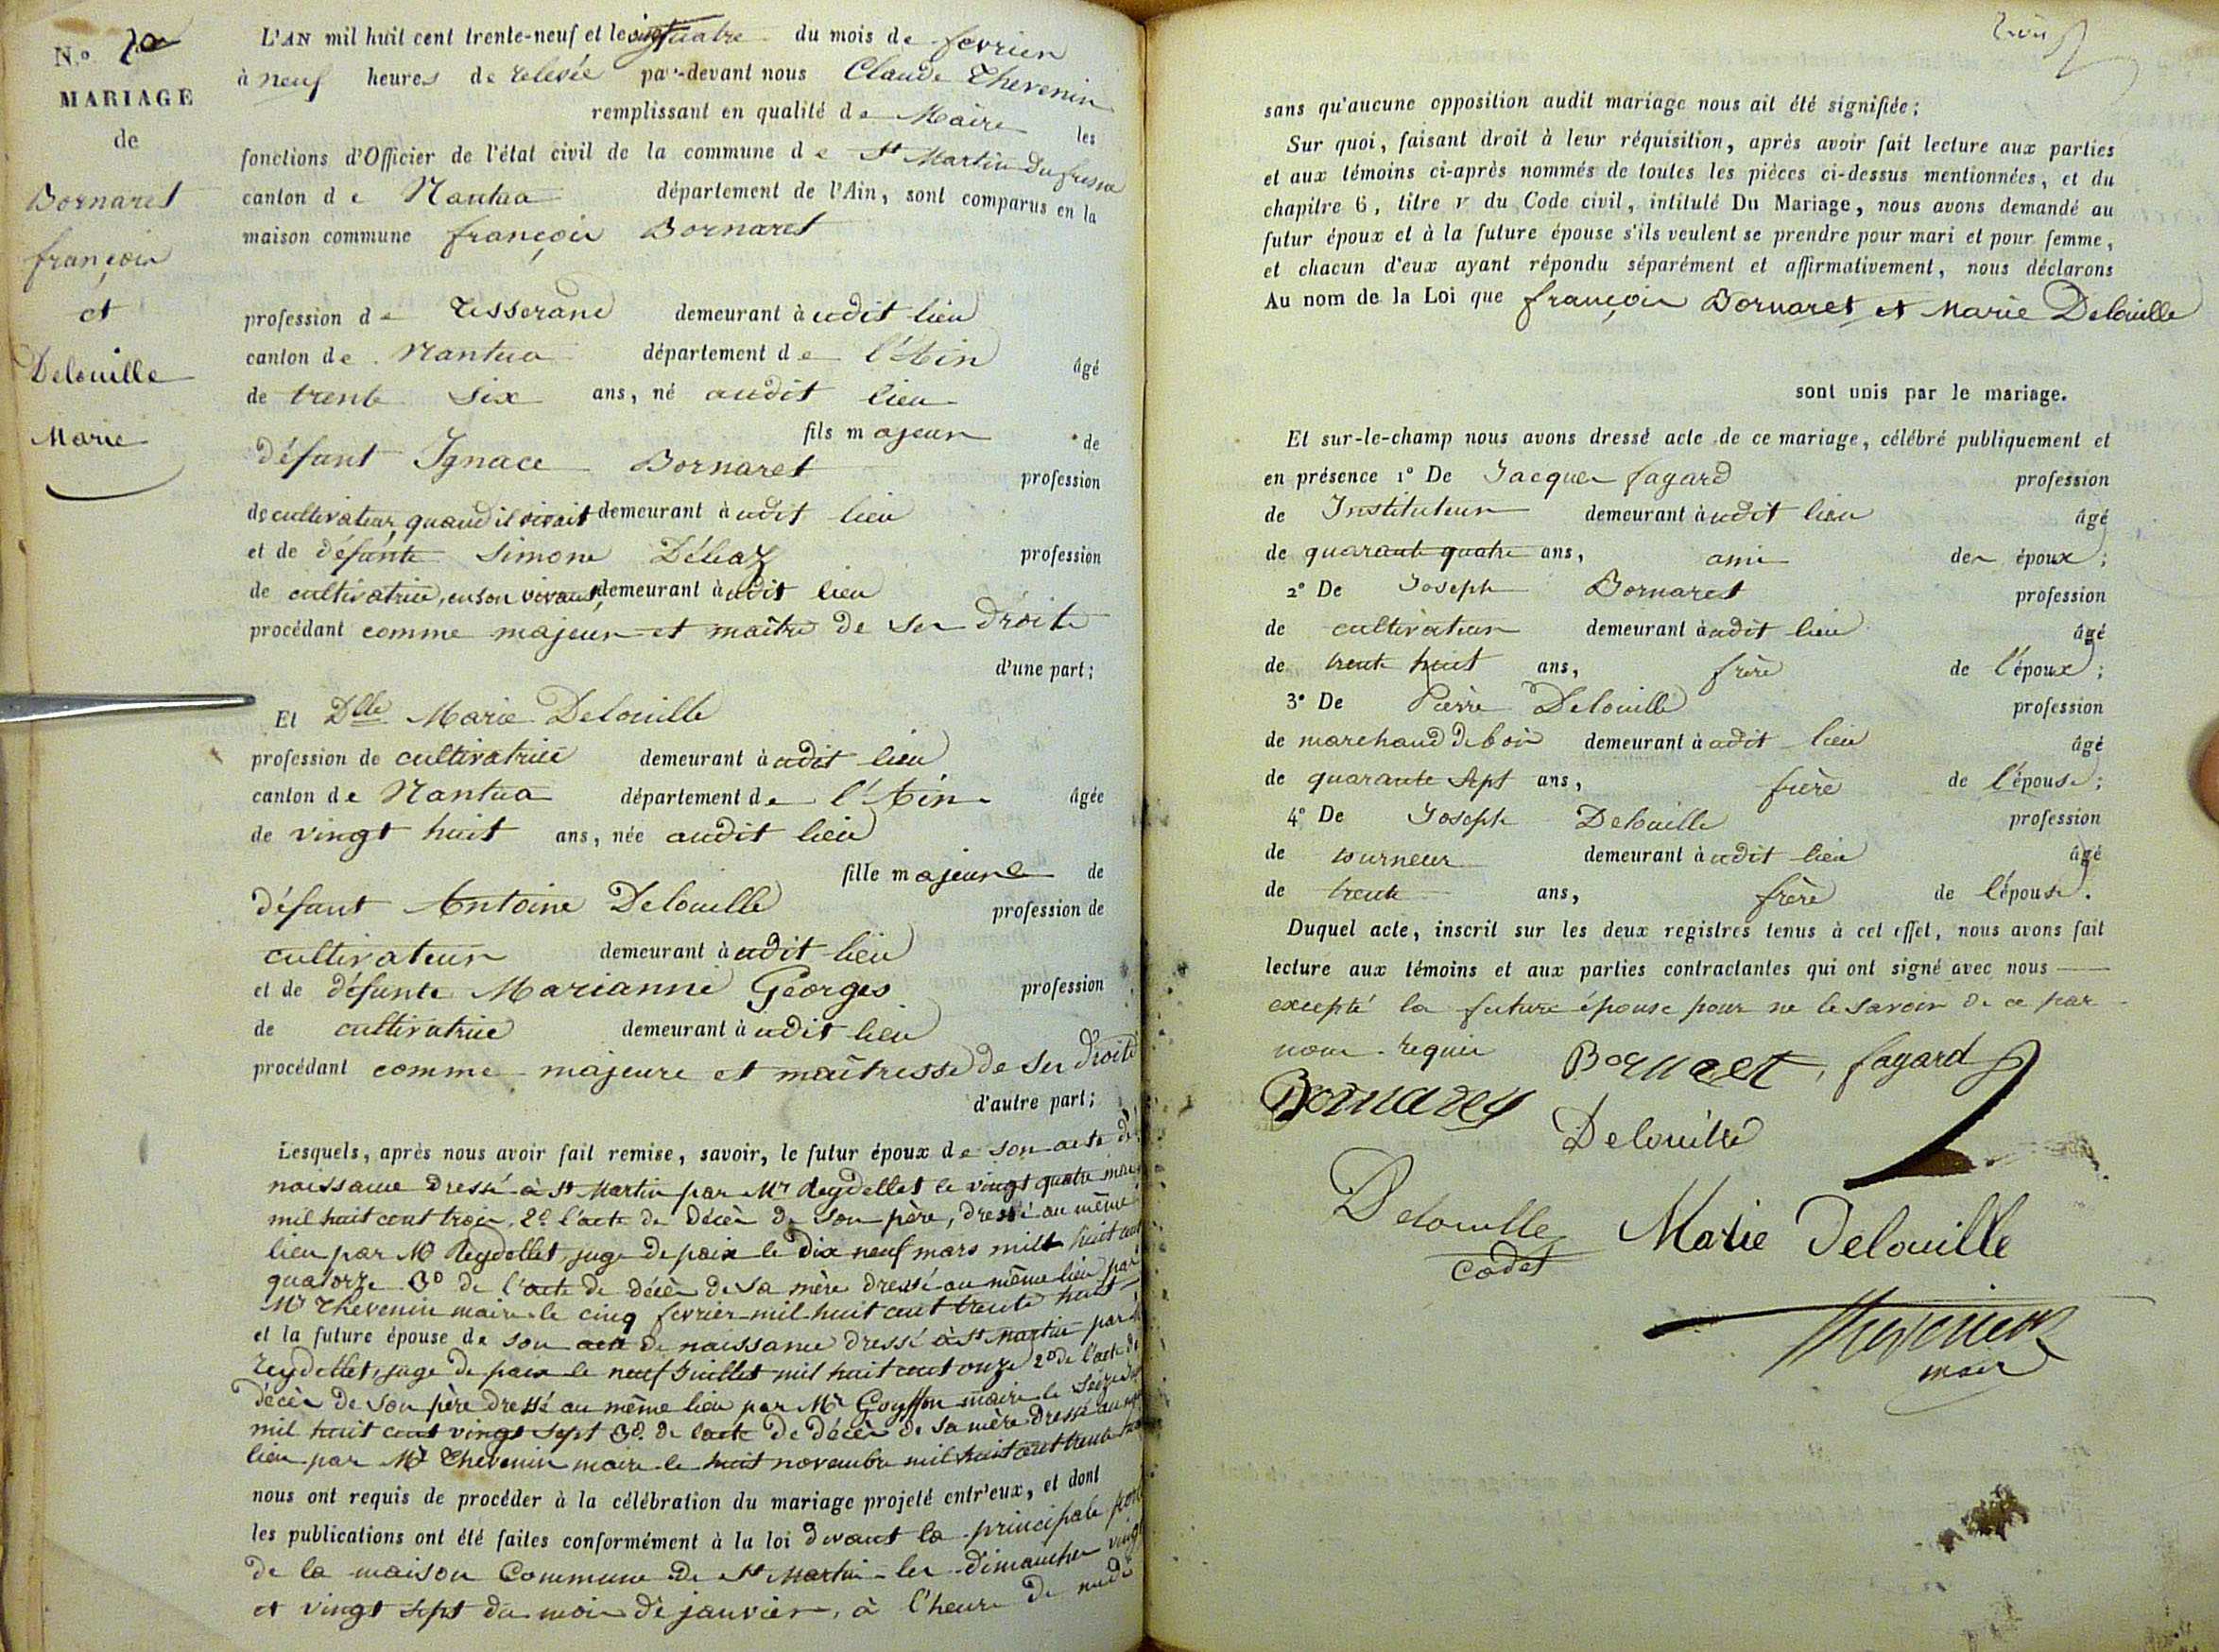 N.º
MARIAGE
de
Bornaret
françois
et
Delouille
Marie
L'AN mil huit cent trente-neuf et le quatre du mois de fevrier
à neuf heures de relevée par-devant nous Claude Thevenin
remplissant en qualité de Maire les
fonctions d'Officier de l'état civil de la commune de St Martin du fresne
canton de Nantua département de l'Ain, sont comparus en la
maison commune françois Bornaret
profession de Tisserand demeurant à udit lieu
canton de Nantua département de l'Ain âgé
de trente six ans, né audit lieu
fils majeur de
défunt Ignace Bornaret profession
de cultivateur, quand il vivait demeurant à udit lieu
et de défunte Simone Déléaz profession
de cultivatrice, en son vivant, demeurant à udit lieu
procédant comme majeur et maître de ses droits
d'une part;
Et Dlle Marie Delouille
profession de cultivatrice demeurant à udit lieu
canton de Nantua département de l'Ain âgée
de vingt huit ans, née audit lieu
fille majeure de
défunt Antoine Delouille profession de
cultivateur demeurant à udit lieu
et de défunte Marianne Georges profession
de cultivatrice demeurant à udit lieu
procédant comme majeure et maîtresse de ses droits
d'autre part;
Lesquels, après nous avoir fait remise, savoir, le futur époux de son acte de
naissance dressé à St Martin par Mr Reydellet le vingt quatre
mil huit cent trois, 2º l'acte de décès de son père, dressé au même
lieu par Mr Reydellet, juge de paix le dix neuf mars mil huit cent
quatorze 3º de l'acte de décès de sa mère dressé au même lieu par
Mr Thevenin maire le cinq fevrier mil huit cent trente huit
et la future épouse de son acte de naissance dressé à St Martin par
Reydellet, juge de paix le neuf Juillet mil huit cent onze 2º de l'acte de
décès de son père dressé au même lieu par Mr Goyffon maire le seize
mil huit cent vingt sept 3º. de l'acte de décès de sa mère dressé au
lieu par Mr Thevenin maire le huit novembre mil huit cent trente
nous ont requis de procéder à la célébration du mariage projeté entr'eux, et dont
les publications ont été faites conformément à la loi devant la principale
de la maison Commune de St Martin les dimanches
et vingt sept du mois de janvier, à l'heure de midi
sans qu'aucune opposition audit mariage nous ait été signifiée;
Sur quoi, faisant droit à leur réquisition, après avoir fait lecture aux parties
et aux témoins ci-après nommés de toutes les pièces ci-dessus mentionnées, et du
chapitre 6, titre v du Code civil, intitulé Du Mariage, nous avons demandé au
futur époux et à la future épouse s'ils veulent se prendre pour mari et pour femme,
et chacun d'eux ayant répondu séparément et affirmativement, nous déclarons
Au nom de la Loi que françois Bornaret et Marie Delouille
sont unis par le mariage.
Et sur-le-champ nous avons dressé acte de ce mariage, célébré publiquement et
en présence 1º De Jacques fagard profession
de Instituteur demeurant à udit lieu âgé
de quarante quatre ans, ami des époux;
2º De Joseph Bornaret profession
de cultivateur demeurant à udit lieu âgé
de trente huit ans, frère de l'époux;
3º De Pierre Delouille profession
de marchand de bois demeurant à udit lieu âgé
de quarante sept ans, frère de l'épouse;
4º De Joseph Delouille profession
de tourneur demeurant à udit lieu âgé
de trente ans, frère de l'épouse.
Duquel acte, inscrit sur les deux registres tenus à cet effet, nous avons fait
lecture aux témoins et aux parties contractantes qui ont signé avec nous
excepté la future épouse pour ne le savoir de ce par
nous requis
Bornaret, fagard
Bornaret
Delouille
Delouille
cadet
Marie Delouille
Thevenin
maire